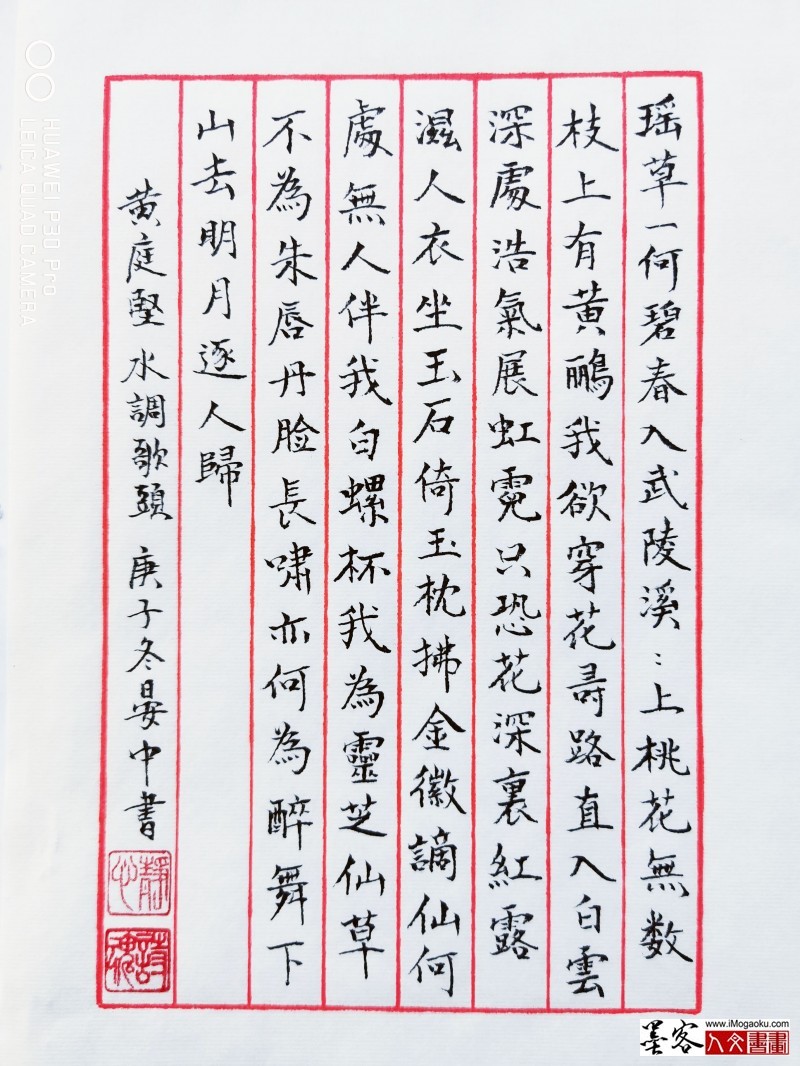 瑶草一何碧春入武陵溪:上桃花無数
枝上有黄鸝我欲穿花尋路直入白雲
深處浩氣展虹霓只恐花深裏紅露
濕人衣坐玉石倚玉枕拂金徽謫仙何
處無人伴我白螺杯我為靈芝仙草
不為朱唇丹脸長嘯亦何為醉舞下
山去明月逐人歸
黄庭堅水調歌頭庚子冬晏中書
靜心
HUAWEI P30 Pro
LEICA QUAD CAMERA
墨客
www.iMogaoku.com
人文書畫